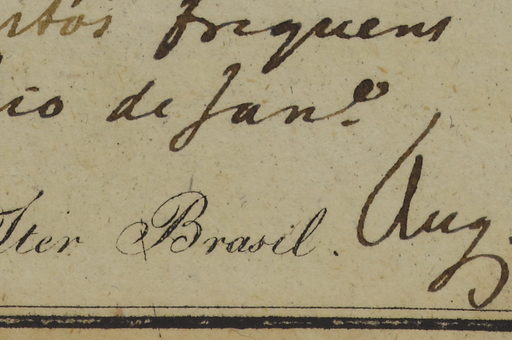 ortos frequens
Rio de Jan.º
Iter Brasil. Aug.